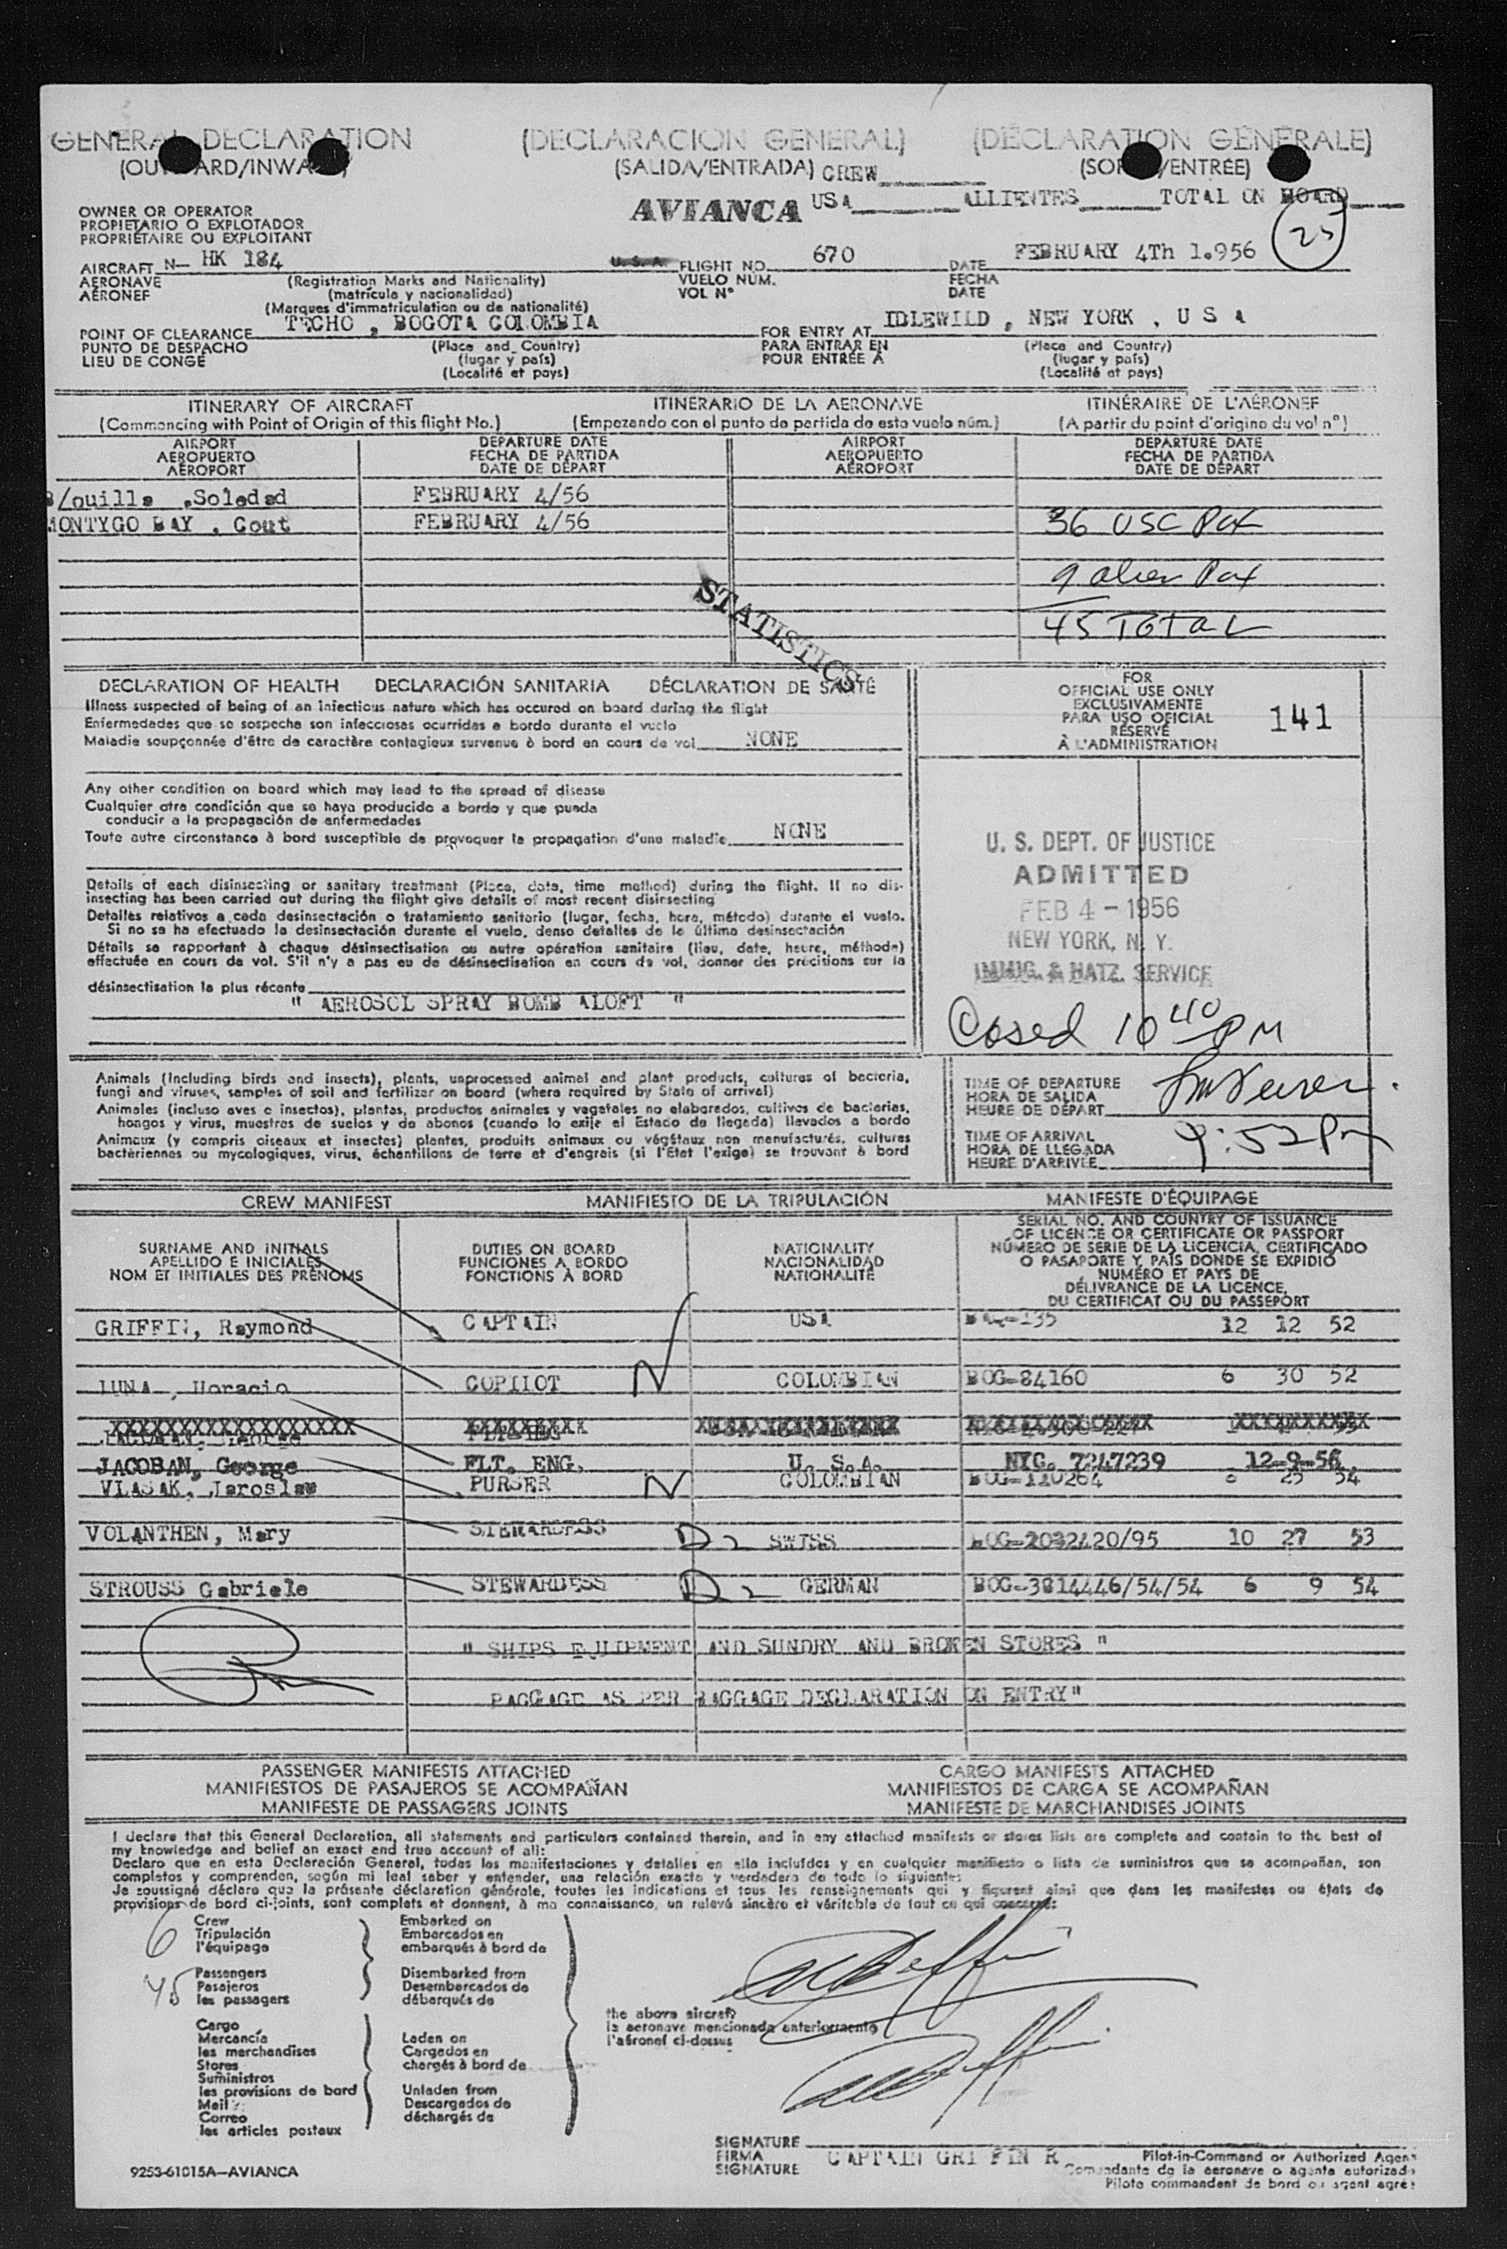 GENERAL DECLARATION (DECLARACION GENERAL) (DÉCLARATION GÉNÉRALE)
(SALIDA/ENTRADA) CREW
AVIANCA USA ALLIENTES TOTAL ON BOARD
25
OWNER OR OPERATOR
PROPIETARIO O EXPLOTADOR
PROPRIÉTAIRE OU EXPLOITANT
AIRCRAFT N- HK 184 U.S.A. FLIGHT NO. 670 DATE FEBRUARY 4Th 1.956
AERONAVE (Registration Marks and Nationality) VUELO NUM. FECHA
AÉRONEF (matrícula y nacionalidad) VOL N° DATE
(Marques d'immatriculation ou de nationalité)
POINT OF CLEARANCE TECHO , BOGOTA COLOMBIA FOR ENTRY AT IDLEWILD , NEW YORK , U S A
PUNTO DE DESPACHO (Place and Country) PARA ENTRAR EN (Place and Country)
LIEU DE CONGÉ (lugar y país) POUR ENTRÉE À (lugar y país)
(Localité et pays) (Localité et pays)
ITINERARY OF AIRCRAFT ITINERARIO DE LA AERONAVE ITINÉRAIRE DE L'AÉRONEF
(Commencing with Point of Origin of this flight No.) (Empezando con el punto de partida de este vuelo núm.) (A partir du point d'origine du vol n°)
AIRPORT DEPARTURE DATE AIRPORT DEPARTURE DATE
AEROPUERTO FECHA DE PARTIDA AEROPUERTO FECHA DE PARTIDA
AÉROPORT DATE DE DÉPART AÉROPORT DATE DE DÉPART
B/quilla ,Soledad FEBRUARY 4/56
MONTYGO BAY , Gout FEBRUARY 4/56 36 USC Pax
9 alien Pax
45 TOTAL
STATISTICS
DECLARATION OF HEALTH DECLARACIÓN SANITARIA DÉCLARATION DE SANTÉ
Illness suspected of being of an infectious nature which has occured on board during the flight
Enfermedades que se sospecha son infecciosas ocurridas a bordo durante el vuelo
Maladie soupçonnée d'être de caractère contagieux survenue à bord en cours de vol NONE
FOR
OFFICIAL USE ONLY
EXCLUSIVAMENTE
PARA USO OFICIAL
RÉSERVÉ
À L'ADMINISTRATION
141
Any other condition on board which may lead to the spread of disease
Cualquier otra condición que se haya producido a bordo y que pueda
conducir a la propagación de enfermedades
Toute autre circonstance à bord susceptible de provoquer la propagation d'une maladie NONE
Details of each disinsecting or sanitary treatment (Place, date, time method) during the flight. If no dis-
insecting has been carried out during the flight give details of most recent disinsecting
Detalles relativos a cada desinsectación o tratamiento sanitario (lugar, fecha, hora, método) durante el vuelo.
Si no se ha efectuado la desinsectación durante el vuelo, dense detalles de la última desinsectación
Détails se rapportant à chaque désinsectisation ou autre opération sanitaire (lieu, date, heure, méthode)
effectuée en cours de vol. S'il n'y a pas eu de désinsectisation en cours de vol, donner des précisions sur la
désinsectisation la plus récente
" AEROSOL SPRAY BOMB ALOFT "
U. S. DEPT. OF JUSTICE
ADMITTED
FEB 4 - 1956
NEW YORK, N. Y.
IMMIG. & NATZ. SERVICE
Closed 10 40 PM
Animals (Including birds and insects), plants, unprocessed animal and plant products, cultures of bacteria,
fungi and viruses, samples of soil and fertilizer on board (where required by State of arrival)
Animales (incluso aves e insectos), plantas, productos animales y vegetales no elaborados, cultivos de bacterias,
hongos y virus, muestras de suelos y de abonos (cuando lo exije el Estado de llegada) llevados a bordo
Animaux (y compris oiseaux et insectes) plantes, produits animaux ou végétaux non manufacturés, cultures
bactériennes ou mycologiques, virus, échantillons de terre et d'engrais (si l'État l'exige) se trouvant à bord
TIME OF DEPARTURE
HORA DE SALIDA
HEURE DE DÉPART
TIME OF ARRIVAL
HORA DE LLEGADA
HEURE D'ARRIVÉE
9:52 Pm
CREW MANIFEST MANIFIESTO DE LA TRIPULACIÓN MANIFESTE D'ÉQUIPAGE
SURNAME AND INITIALS
APELLIDO E INICIALES
NOM ET INITIALES DES PRÉNOMS
DUTIES ON BOARD
FUNCIONES A BORDO
FONCTIONS À BORD
NATIONALITY
NACIONALIDAD
NATIONALITÉ
SERIAL NO. AND COUNTRY OF ISSUANCE
OF LICENCE OR CERTIFICATE OR PASSPORT
NÚMERO DE SERIE DE LA LICENCIA, CERTIFICADO
O PASAPORTE Y PAÍS DONDE SE EXPIDIÓ
NUMÉRO ET PAYS DE
DÉLIVRANCE DE LA LICENCE,
DU CERTIFICAT OU DU PASSEPORT
GRIFFIN, Raymond CAPTAIN USA 12 12 52
LUNA , Horacio COPILOT N COLOMBIAN BOG-84160 6 30 52
JACOBAN, George FLT. ENG. U. S.A. NYC. 7247239 12-9-56
VLASAK, Jaroslaw PURSER N COLOMBIAN BOG-110264 6 25 54
VOLANTHEN, Mary STEWARDESS D2 SWISS BOG-2032420/95 10 27 53
STROUSS Gabriele STEWARDESS D2 GERMAN BOG-3814446/54/54 6 9 54
" SHIPS EQUIPMENT AND SUNDRY AND BROKEN STORES "
BAGGAGE AS PER BAGGAGE DECLARATION ON ENTRY"
PASSENGER MANIFESTS ATTACHED CARGO MANIFESTS ATTACHED
MANIFIESTOS DE PASAJEROS SE ACOMPAÑAN MANIFIESTOS DE CARGA SE ACOMPAÑAN
MANIFESTE DE PASSAGERS JOINTS MANIFESTE DE MARCHANDISES JOINTS
I declare that this General Declaration, all statements and particulars contained therein, and in any attached manifests or stores lists are complete and contain to the best of
my knowledge and belief an exact and true account of all:
Declaro que en esta Declaración General, todas las manifestaciones y detalles en ella incluídos y en cualquier manifiesto o lista de suministros que se acompañan, son
completos y comprenden, según mi leal saber y entender, una relación exacta y verdadera de todo lo siguiente:
Je soussigné déclare que la présente déclaration générale, toutes les indications et tous les renseignements qui y figurent ainsi que dans les manifestes ou états de
provisions de bord ci-joints, sont complets et donnent, à ma connaissance, un relevé sincère et véritable de tout ce qui concerne:
6
Crew
Tripulación
l'équipage
Embarked on
Embarcados en
embarqués à bord de
45
Passengers
Pasajeros
les passagers
Disembarked from
Desembarcados de
débarqués de
the above aircraft
la aeronave mencionada anteriormente
l'aéronef ci-dessus
Cargo
Mercancía
les merchandises
Stores
Suministros
les provisions de bord
Mail
Correo
les articles postaux
Laden on
Cargados en
chargés à bord de
Unladen from
Descargados de
déchargés de
SIGNATURE
FIRMA
SIGNATURE
CAPTAIN GRI FIN R
Pilot-in-Command or Authorized Agent
Comandante de la aeronave o agente autorizado
Pilote commandant de bord ou agent agréé
9253-61015A—AVIANCA